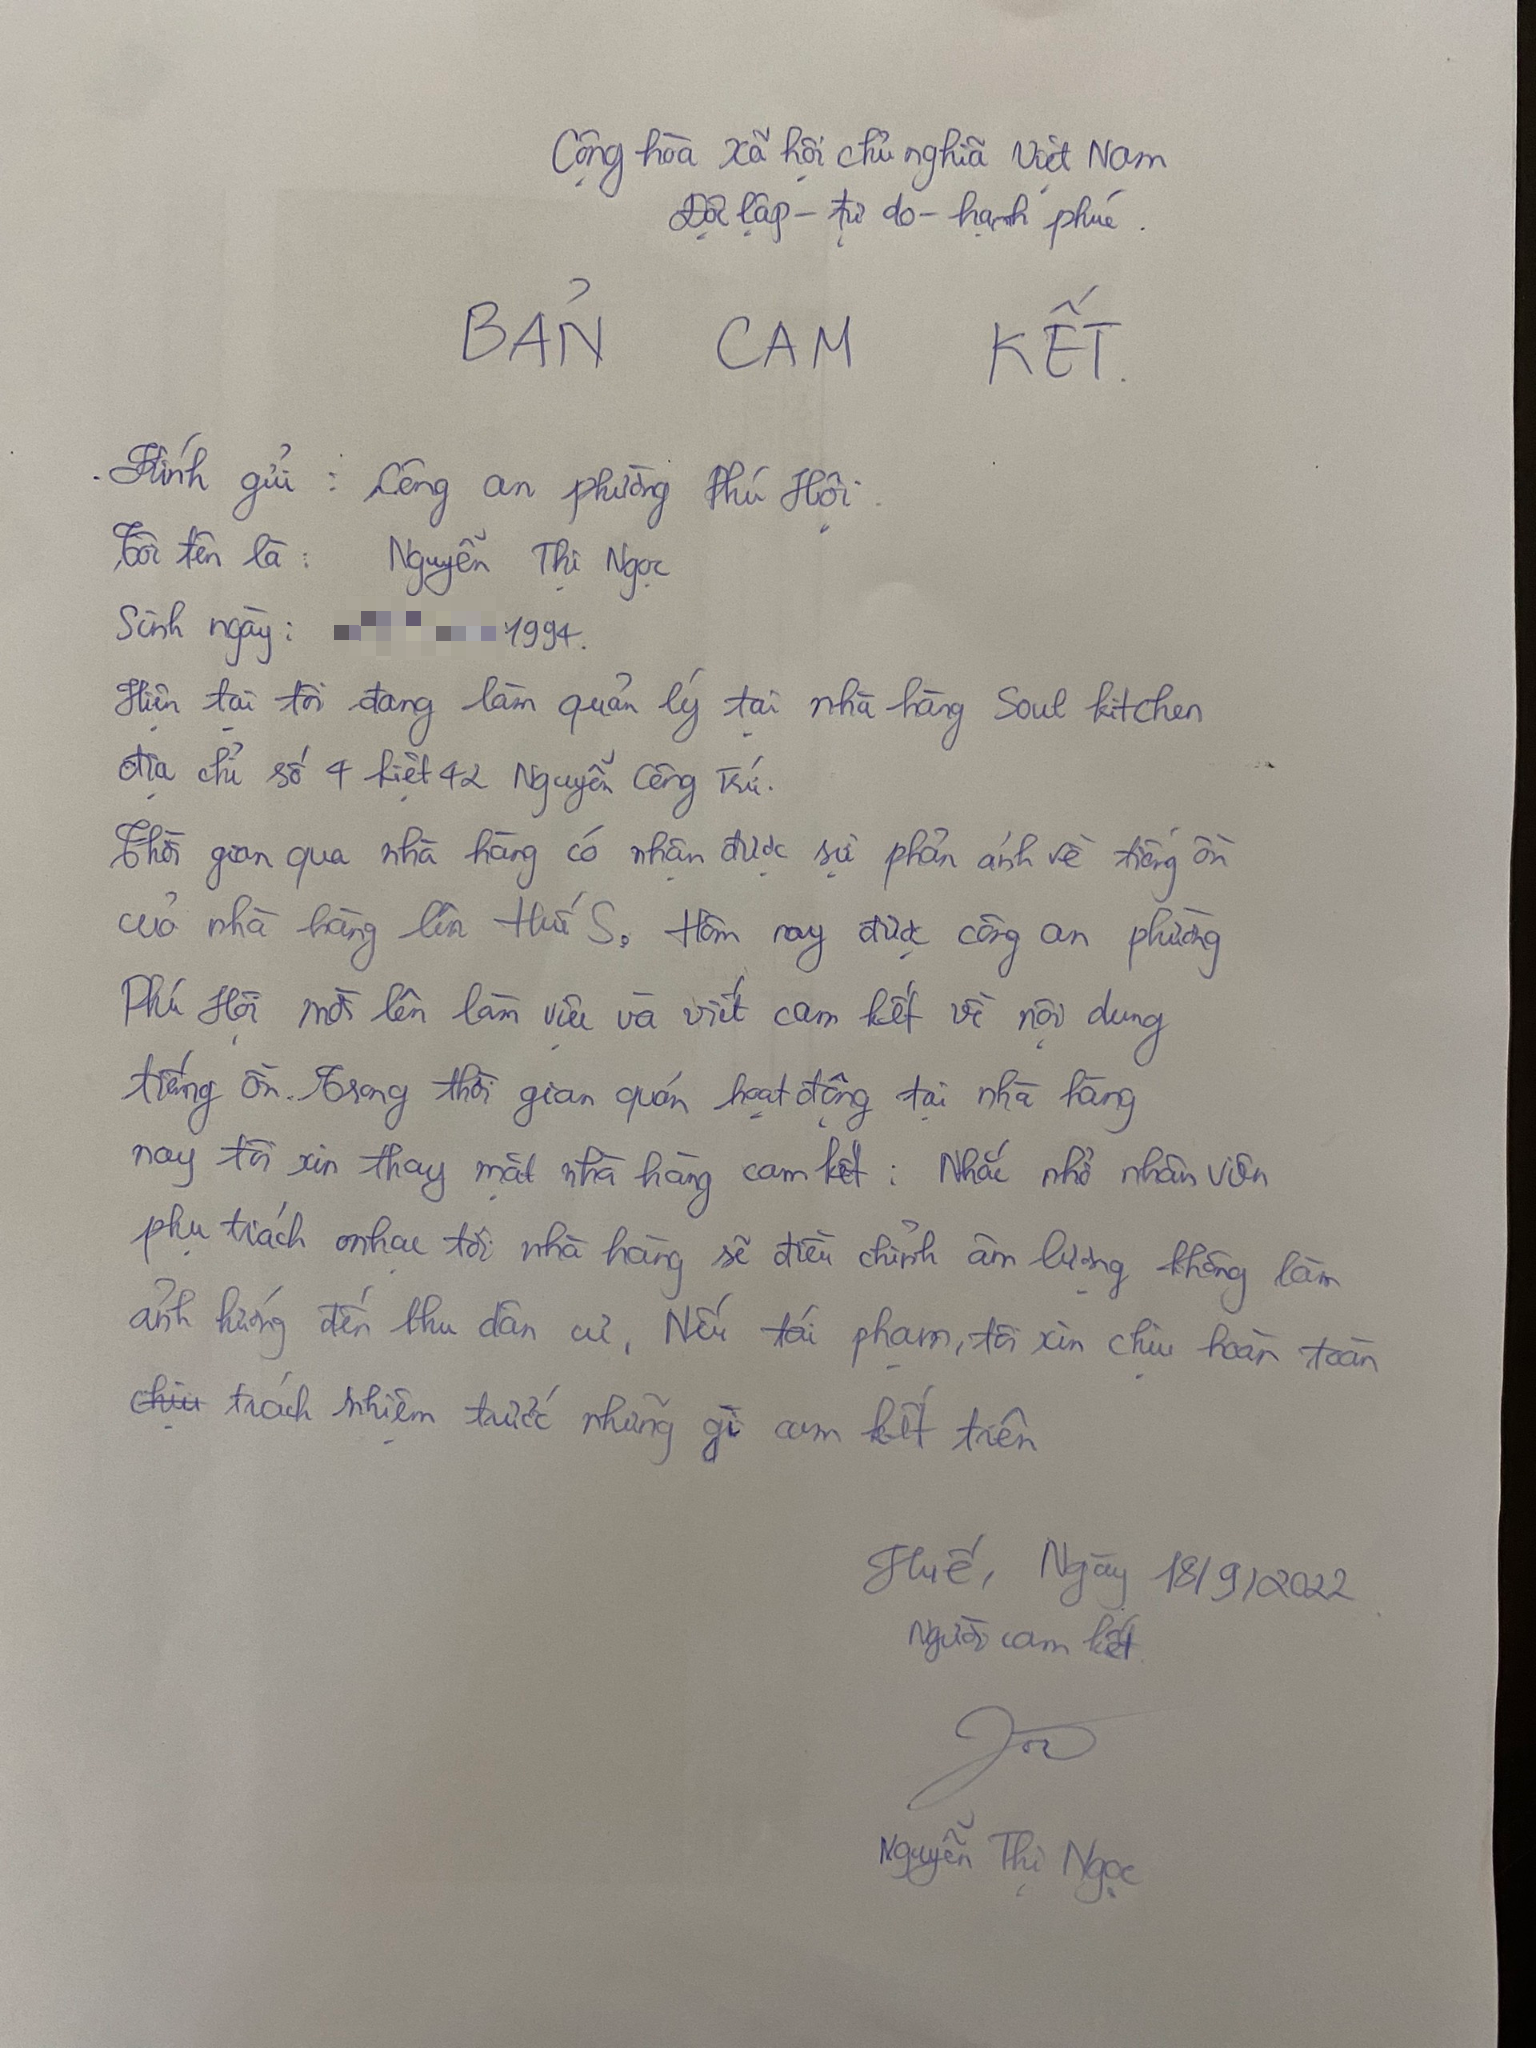 Cộng hòa xã hội chủ nghĩa Việt Nam
Độc lập - tự do - hạnh phúc.
BẢN CAM KẾT.
Kính gửi : Công an phường Phú Hội.
Tôi tên là : Nguyễn Thị Ngọc
Sinh ngày: 1994.
Hiện tại tôi đang làm quản lý tại nhà hàng Soul kitchen
địa chỉ số 4 kiệt 42 Nguyễn Công Trứ.
Thời gian qua nhà hàng có nhận được sự phản ánh về tiếng ồn
của nhà hàng lên Huế S. Hôm nay được công an phường
Phú Hội mời lên làm việc và viết cam kết về nội dung
tiếng ồn. Trong thời gian quán hoạt động tại nhà hàng
nay tôi xin thay mặt nhà hàng cam kết : Nhắc nhở nhân viên
phụ trách nhạc tới nhà hàng sẽ điều chỉnh âm lượng không làm
ảnh hưởng đến khu dân cư, Nếu tái phạm, tôi xin chịu hoàn toàn
chịu trách nhiệm trước những gì cam kết trên
Huế, Ngày 18/9/2022
Người cam kết.
Nguyễn Thị Ngọc